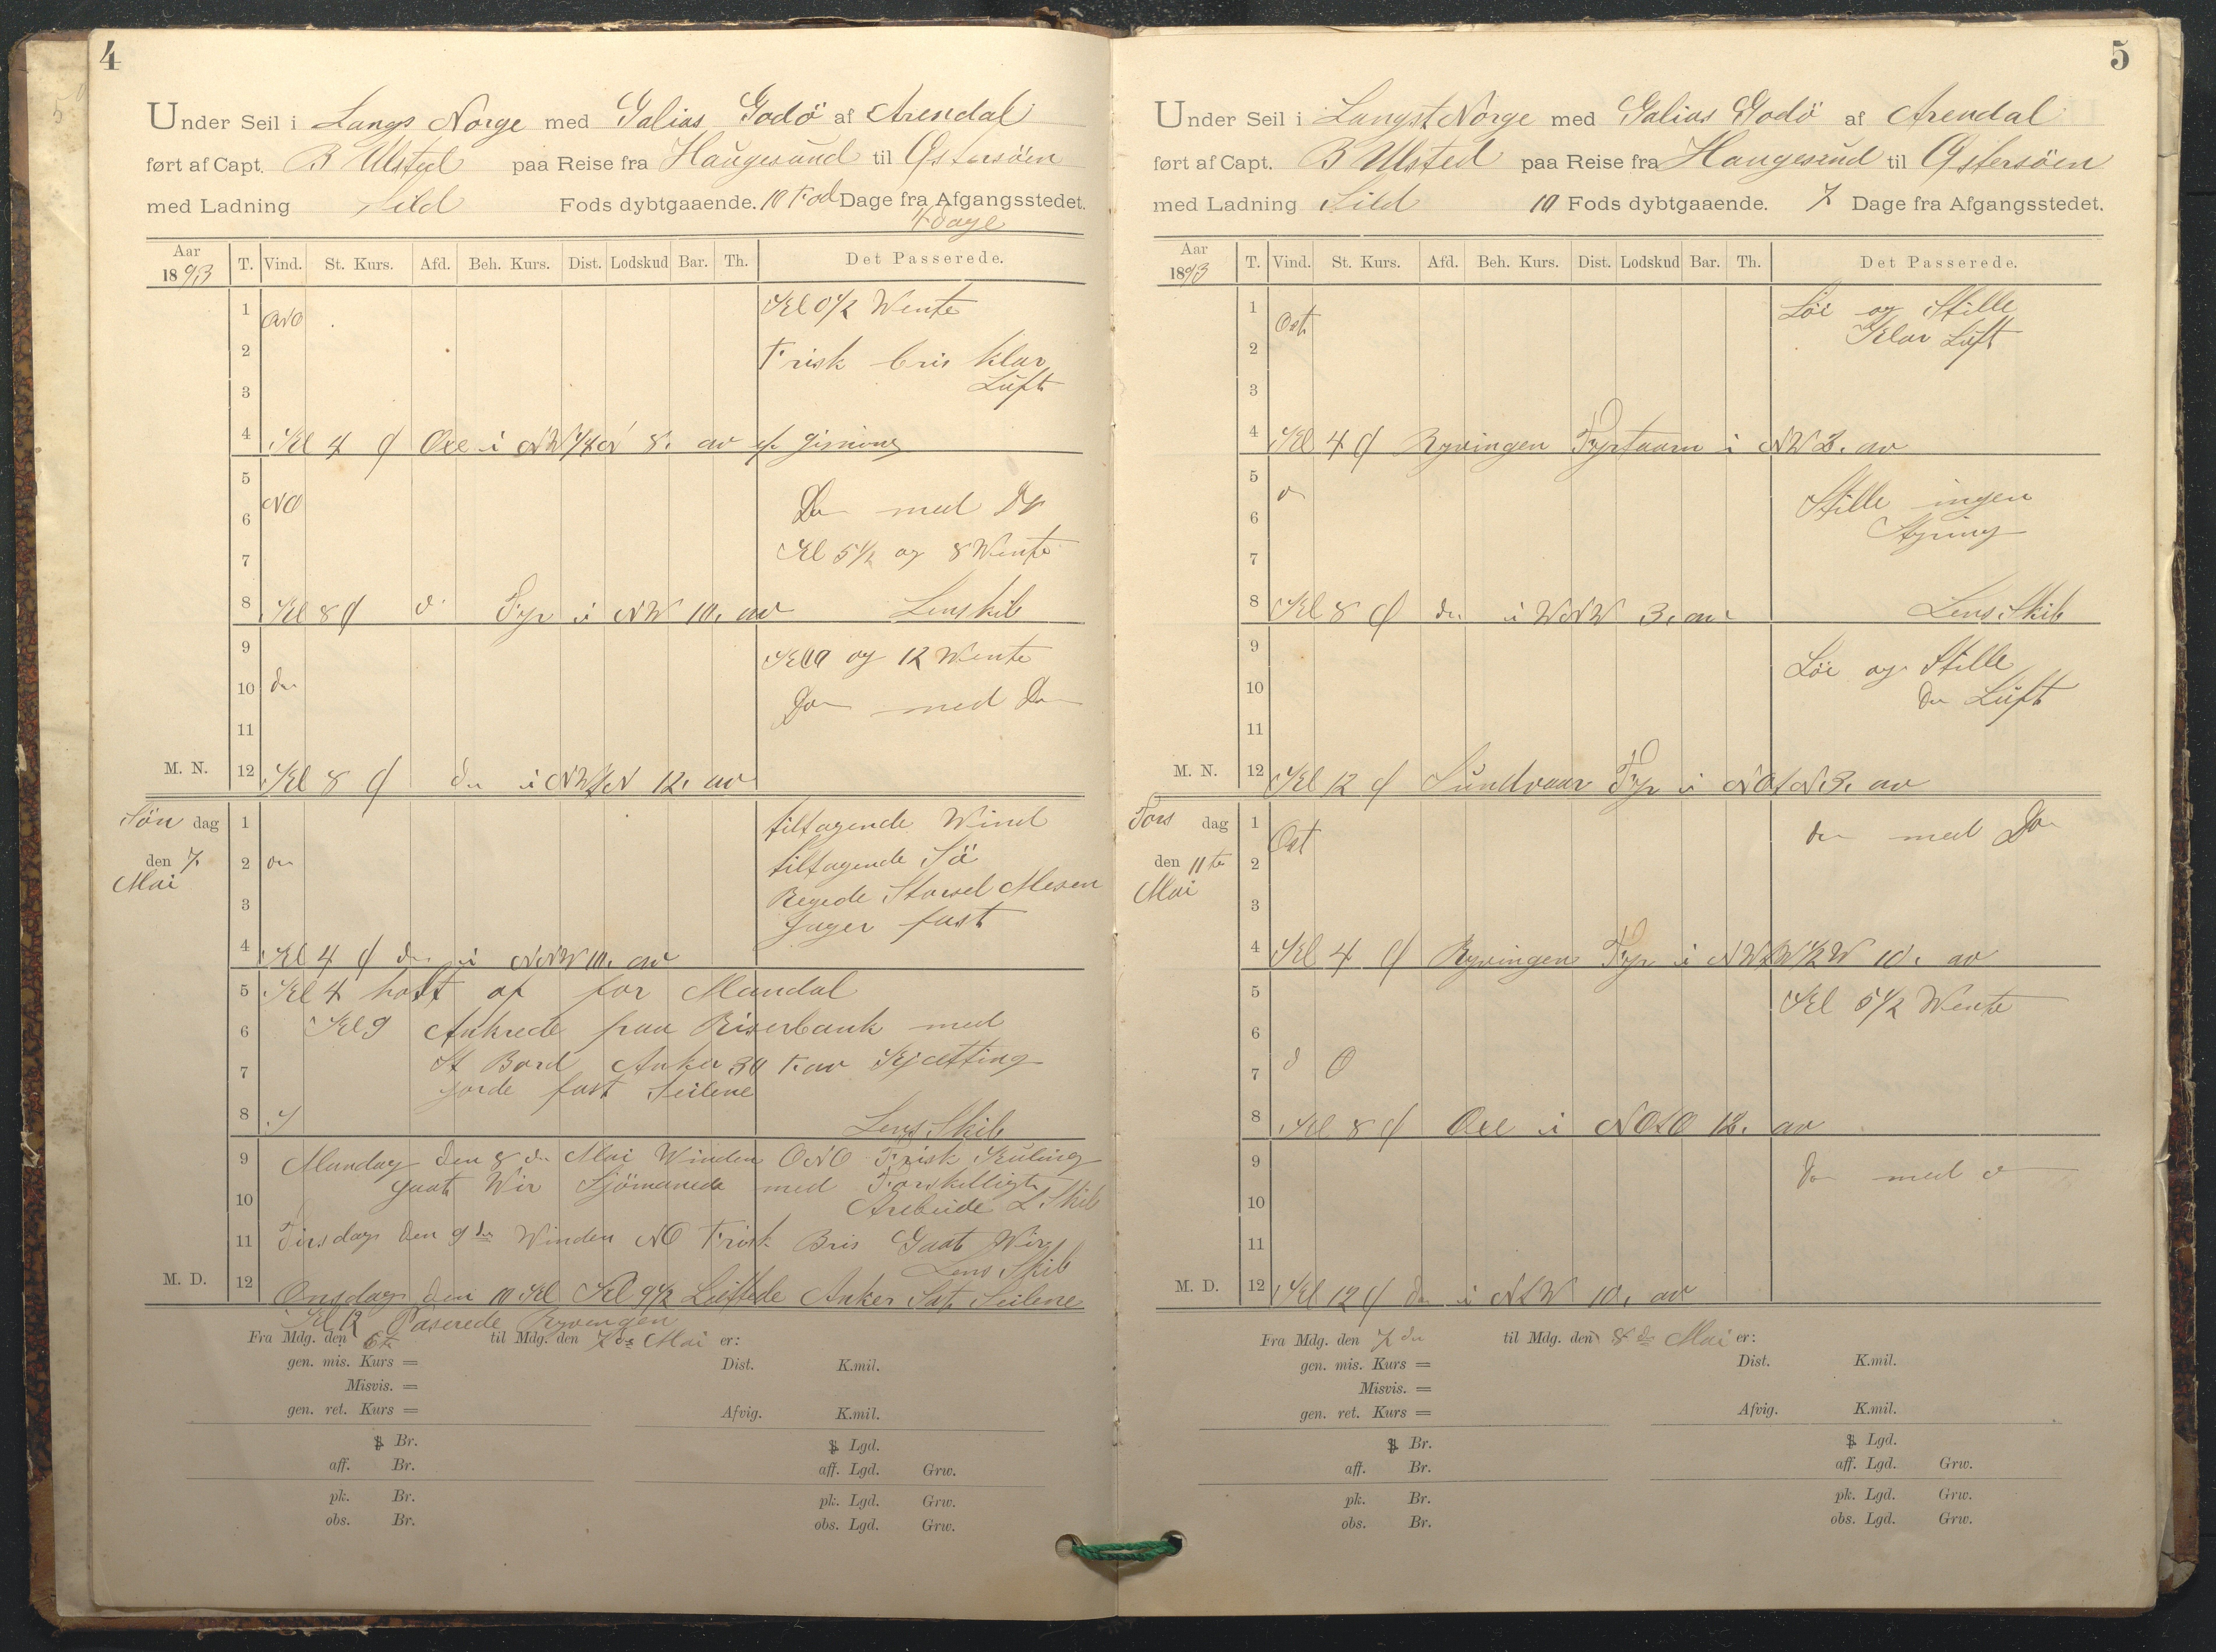 4
Under Seil i Langs Norge med Galias Godö af Arendal
ført af Capt. B Ulsted paa Reise fra Haugesund til Östersöen
med Ladning Sild Fods dybtgaaende. 10 Fod Dage fra Afgangsstedet.
4 dage
Aar 1893 T. Vind. St. Kurs. Afd. Beh. Kurs. Dist. Lodskud Bar. Th. Det Passerede.
1 ONO Kl 0 1/2 Wente
2 Frisk bris klar
3 Luft
4 Kl 4 Oxe i
5
6 NO Do med Do
7 Kl 5 1/2 og 8 Wente
8 Kl 8 Fyr i NW 10, av Lenskib
9 og 12 Wente
10 do
11 Do med Do
M. N. 12 Kl 8 do i 12, av
Sön dag 1 tiltagende Wind
den 7. 2 do tiltagende Sö
Mai 3 Storsel Mesen
Jager fast
4 Kl 4 do i NNW 10, av
5 Kl 4 holt af for Mandal
6 Kl 9 Ankrede paa Riserbank med
7 St Bord Anker 30 F av Kjætting
gorde fast Seilene
8 Lens Skib
9 Mandag den 8 de Mai Winden ONO Frisk Kuling
10 gaat Wir Sjömanede med Forskelligt
Arebeide L Skib
11 Tirsdag den 9 de Winden NO Frisk Bris Gaat Wir
Lens Skib
M. D. 12 Onsdag den 10 Kl Kl 9 1/2 Lettede Anker Sat Seilene
Kl 12 Paserede Ryvengen
Fra Mdg. den 6te til Mdg. den 7de Mai er:
gen. mis. Kurs = Dist. K.mil.
Misvis. =
gen. ret. Kurs = Afvig. K.mil.
Br. Lgd.
aff. Br. aff. Lgd. Grw.
pk. Br. pk. Lgd. Grw.
obs. Br. obs. Lgd. Grw.
5
Under Seil i Langst Norge med Galias Godö af Arendal
ført af Capt. B Ulsted paa Reise fra Haugesund til Östersöen
med Ladning Sild 10 Fods dybtgaaende. 7 Dage fra Afgangsstedet.
Aar 1893 T. Vind. St. Kurs. Afd. Beh. Kurs. Dist. Lodskud Bar. Th. Det Passerede.
1 Ost Löi og Stille
2 Klar Luft
3
4 Kl 4 Ryvingen Fyrtaarn i NW 3, av
5
6 Stille ingen
7 Styring
8 Kl 8 do i WNW 3, av Lens Skib
9 Löi og Stille
10 do Luft
11
M. N. 12 Kl 12 Fyr i 3, av
Tors dag 1 Ost do med Do
den 11te 2
Mai 3
4 Kl 4 Ryvingen Fyr i 10, av
5 Kl 5 1/2 Wente
6
7 O
8 Kl 8 Oxe i 12, av
9 do med
10
11
M. D. 12 Kl 12 do i 10, av
Fra Mdg. den 7 de til Mdg. den 8 de Mai er:
gen. mis. Kurs = Dist. K.mil.
Misvis. =
gen. ret. Kurs = Afvig. K.mil.
Br. Lgd.
aff. Br. aff. Lgd. Grw.
pk. Br. pk. Lgd. Grw.
obs. Br. obs. Lgd. Grw.